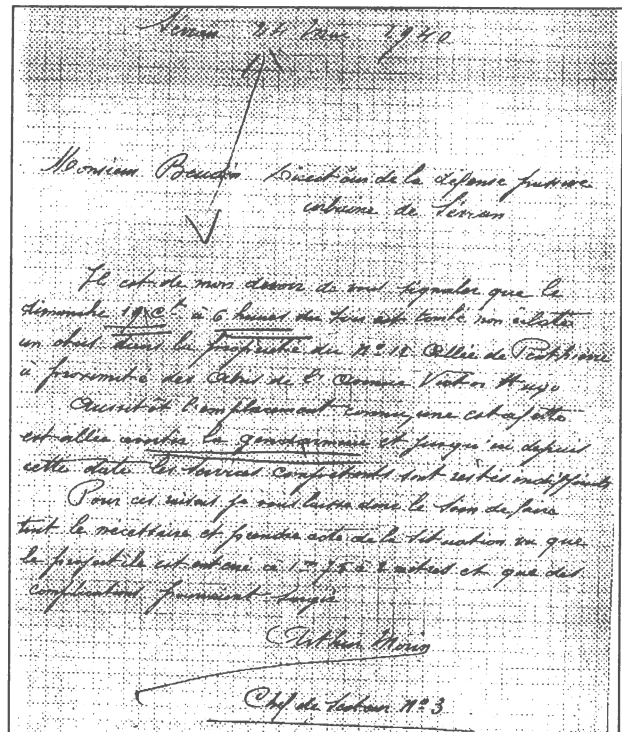 Sevran 24 Mai 1940
Monsieur Beudin Directeur de la défense passive
urbaine de Sevran
Il est de mon devoir de vous signaler que le
dimanche 19 Ct à 6 heures du soir est tombé non éclaté
un obus dans la propriété du N° 12 Allée de
à proximité des Abris de l'Avenue Victor Hugo
Aussitôt l'emplacement connu, une estafette
est allée la gendarmerie et jusqu'ici depuis
cette date les services compétents sont restés indifférents
Pour ces raisons je vous laisse donc le soin de faire
tout le nécessaire et prendre acte de la situation vu que
le projectile est enterré à 1m 75 à 2 mètres et que des
complications pourraient surgir
Arthur Morin
Chef de Secteur N° 3